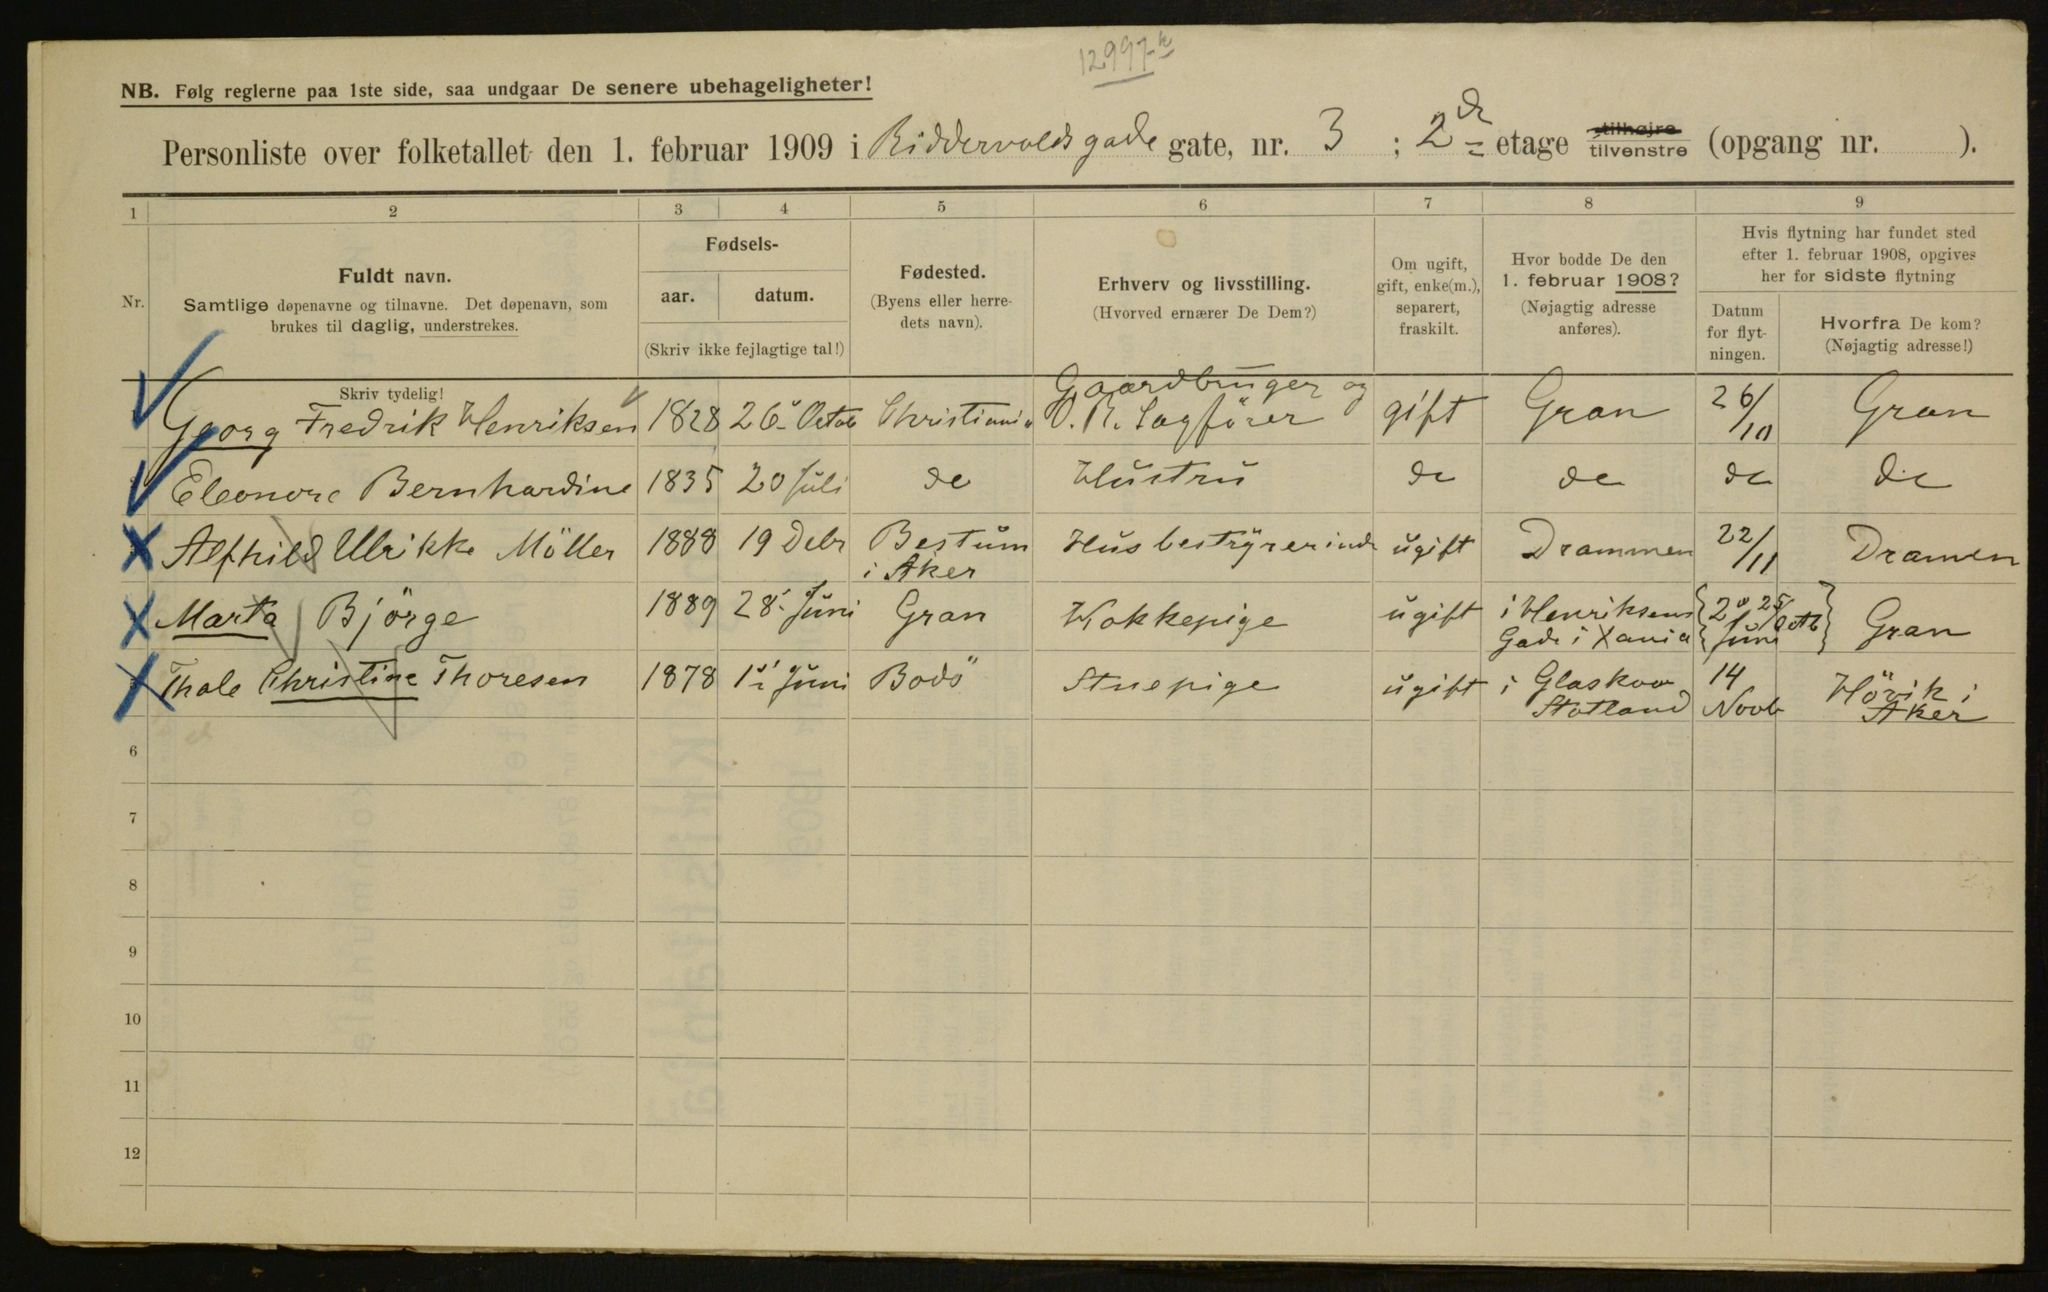 12997 k
NB. Følg reglerne paa 1ste side, saa undgaar De senere ubehageligheter!
Personliste over folketallet den 1. februar 1909 i Riddervoldsgade gate, nr. 3 ; 2de etage tilhøjre tilvenstre (opgang nr. ).
1 2 3 4 5 6 7 8 9
Nr.
Fuldt navn.
Samtlige døpenavne og tilnavne. Det døpenavn, som
brukes til daglig, understrekes.
Skriv tydelig!
Fødsels-
aar. datum.
(Skriv ikke fejlagtige tal!)
Fødested.
(Byens eller herre-
dets navn).
Erhverv og livsstilling.
(Hvorved ernærer De Dem?)
Om ugift,
gift, enke(m.),
separert,
fraskilt.
Hvor bodde De den
1. februar 1908?
(Nøjagtig adresse
anføres).
Hvis flytning har fundet sted
efter 1. februar 1908, opgives
her for sidste flytning
Datum
for flyt-
ningen.
Hvorfra De kom?
(Nøjagtig adresse!)
Georg Fredrik Henriksen 1828 26 Octob Christiania Gaardbruger og O. R. Sagförer gift Gran 26/10 Gran
Eleonore Bernhardine 1835 20 Juli do Hustru do do do do
Alfhild Ulrikke Möller 1888 19 Debr Bestum i Aker Husbestÿrerinde ugift Drammen 22/11 Dramen
Marta Björge 1889 28 Juni Gran Kokkepige ugift i Henriksens Gade i Xania Juni Gran
Thale Christine Thoresen 1878 1 Juni Bodö Stuepige ugift i Glaskow Skotland 14 Novb Hövik i Aker
6
7
8
9
10
11
12